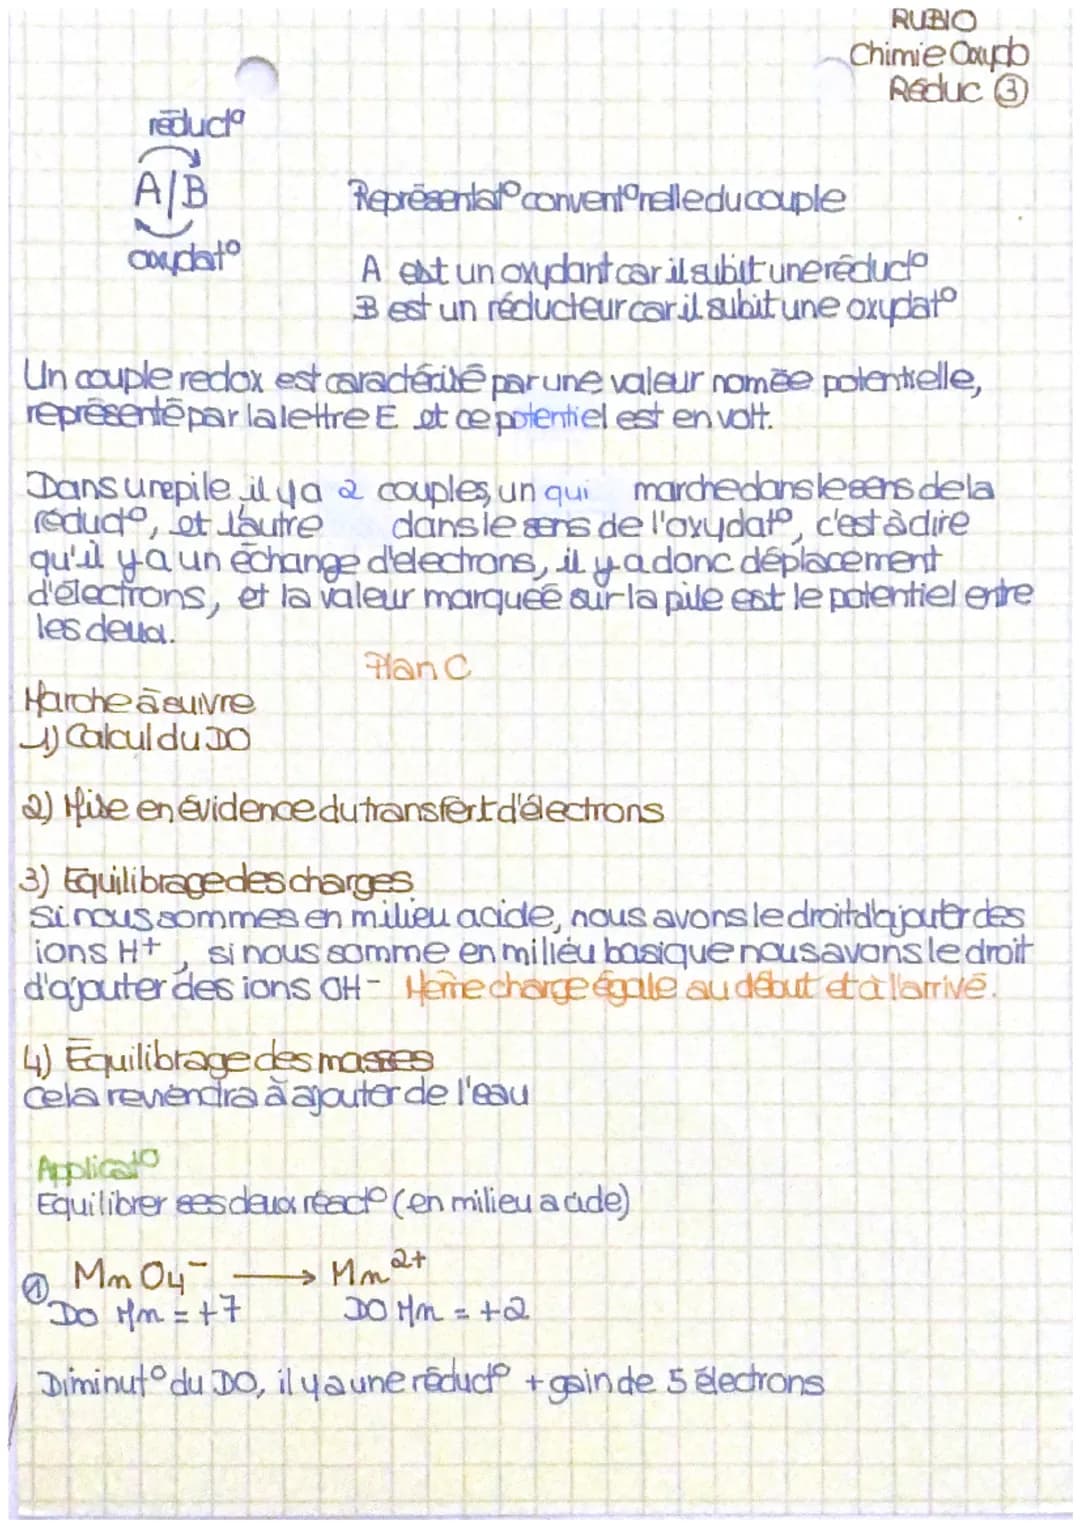 RUBIO
Chimie Oxydo
Réduc ③
réduct°
A/B
oxydat°
Représentat° convent°nelle du couple
A est un oxydant car il subit une réduct°
B est un réducteur car il subit une oxydat°
Un couple redox est caractérisé par une valeur nomée potentielle,
représenté par la lettre E et ce potentiel est en volt.
Dans une pile il y a 2 couples, un qui marche dans le sens de la
réduct°, et l'autre dans le sens de l'oxydat°, c'est à dire
qu'il y a un échange d'électrons, il y a donc déplacement
d'électrons, et la valeur marquée sur la pile est le potentiel entre
les deux.
Plan C
Marche à suivre
1) Calcul du DO
2) Mise en évidence du transfert d'électrons
3) Equilibrage des charges
Si nous sommes en milieu acide, nous avons le droit d'ajouter des
ions H+, si nous somme en milieu basique nous avons le droit
d'ajouter des ions OH- Même charge égale au début et à l'arrivé.
4) Equilibrage des masses
Cela reviendra à ajouter de l'eau
Applicat°
Equilibrer ses deux réact° (en milieu acide)
① MnO4⁻ ⟶ Mn²⁺
DO Mn = +7 DO Mn = +2
Diminut° du DO, il y a une réduct° + gain de 5 électrons